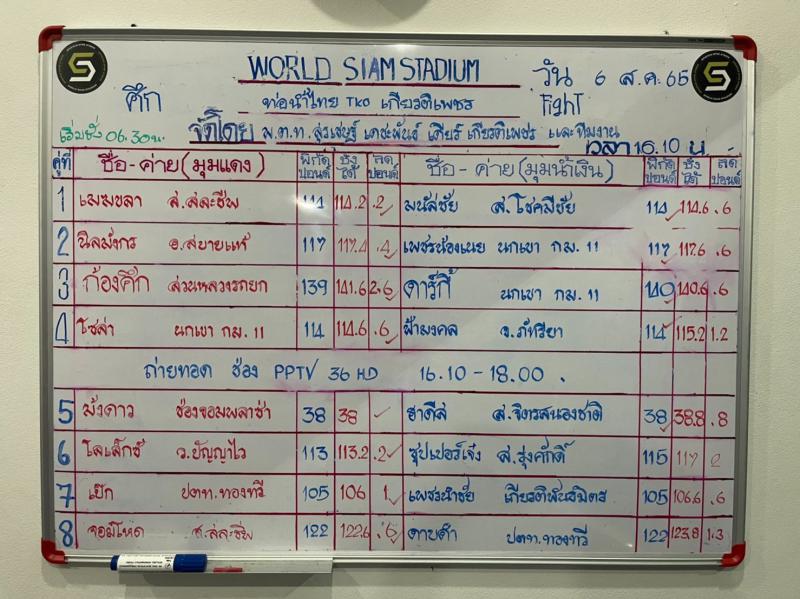 WORLD SIAM STADIUM
วัน 6 ส.ค. 65
ศึก ท่อน้ำไทย TKO เกียรติเพชร Fight
เริ่มชั่ง 06.30น. จัดโดย พ.ต.ท. สุรเชษฐ์ เกียรติเพชร และทีมงาน
เวลา 16.10 น.
คู่ที่ ชื่อ-ค่าย(มุมแดง) พิกัด ปอนด์ ชั่ง ได้ ลด ปอนด์ ชื่อ - ค่าย(มุมน้ำเงิน) พิกัด ปอนด์ ชั่ง ได้ ลด ปอนด์
1 เมฆขลา ส.สละชีพ 114 114.2 .2 มนัสชัย ส.โชคมีชัย 114 114.6 .6
2 นิลมังกร อ.สบายแท้ 117 117.4 .4 เพชรน้องเนย นกเขา กม. 11 117 117.6 .6
3 ก้องศึก สวนหลวงรถยก 139 141.6 2.6 ดาร์กี้ นกเขา กม. 11 140 140.6 .6
4 โซล่า นกเขา กม. 11 114 114.6 .6 ฟ้ามงคล จ.ภัทรียา 114 115.2 1.2
ถ่ายทอด ช่อง PPTV 36 HD 16.10 - 18.00 .
5 มังดาว ช่องจอมพลาซ่า 38 38 ฮาดีส ส.จิตรสนองชาติ 38 38.8 .8
6 โลเล็กซ์ ว.ปัญญาไว 113 113.2 .2 ซุปเปอร์เจ๋ง ส.รุ่งศักดิ์ 115 117 2
7 เป๊ก ปตท.ทองทวี 105 106 1 เพชรนำชัย เกียรติพันธมิตร 105 106.6 .6
8 จอมโหด ส.สละชีพ 122 122.6 .6 ดาบดำ ปตท.ทองทวี 122 123.8 1.3